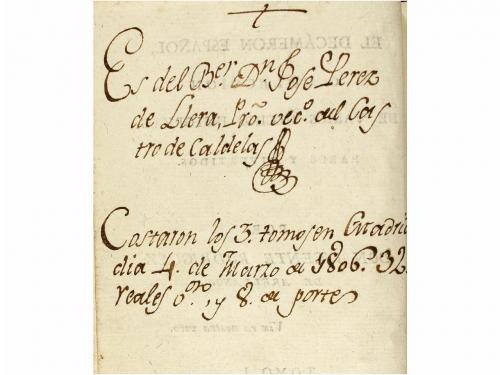 Es del B.er D.n Jose Perez
de Llera, Pro. vec.o del Cas
tro de Caldelas
Costaron los 3. tomos en Madrid
dia 4. de Marzo de 1806. 32
reales v.on, y 8. de porte